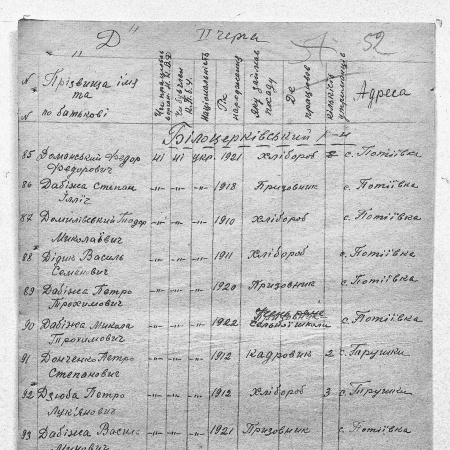 "Д" ІІ черга
52
№ № Прізвища імя та по батькові
Національність
Рік народження
Яку займав посаду
Де працював
Кількість утриманців
Адреса
Білоцерківський р-н
85 Доманський Федор Федорович ні ні укр. 1921 Хлібороб 2 с. Потіївка
86 Дабіжа Степан Ілліч -"- -"- -"- 1918 Призовник с. Потіївка
87 Миколаївич -"- -"- -"- 1910 Хлібороб с. Потіївка
88 Дідик Василь Семенович -"- -"- -"- 1911 Хлібороб с. Потіївка
89 Дабіжа Петро Трохимович -"- -"- -"- 1920 Призовник с. Потіївка
90 Дабіжа Микола Трохимович -"- -"- -"- 1922 школи с. Потіївка
91 Донченко Петро Степанович -"- -"- -"- 1912 Кадровик 2 с. Трушки
92 Дзюба Петро Лук'янович -"- -"- -"- 1912 Хлібороб 3 с. Трушки
93 Дабіжа -"- -"- -"- 1921 Призовник с. Потіївка